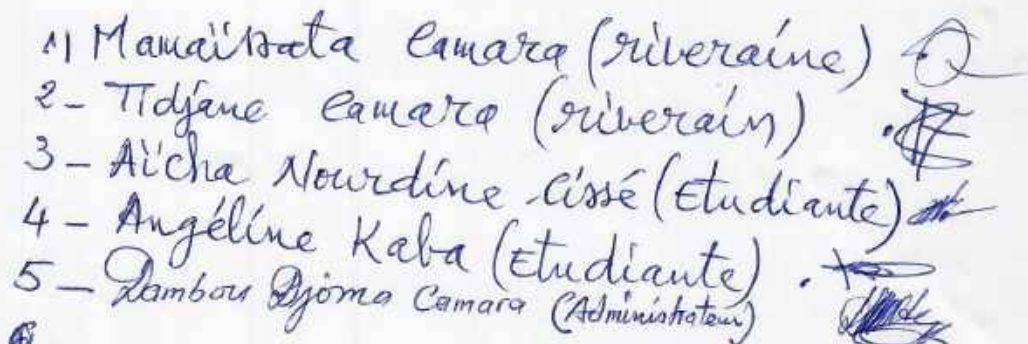 1) Mamaïssata Camara (riveraine)
2- Tidjane Camara (riverain)
3- Aïcha Nourdine Cissé (Etudiante)
4- Angéline Kaba (Etudiante).
5- Dambou Djoma Camara (Administrateur)
6